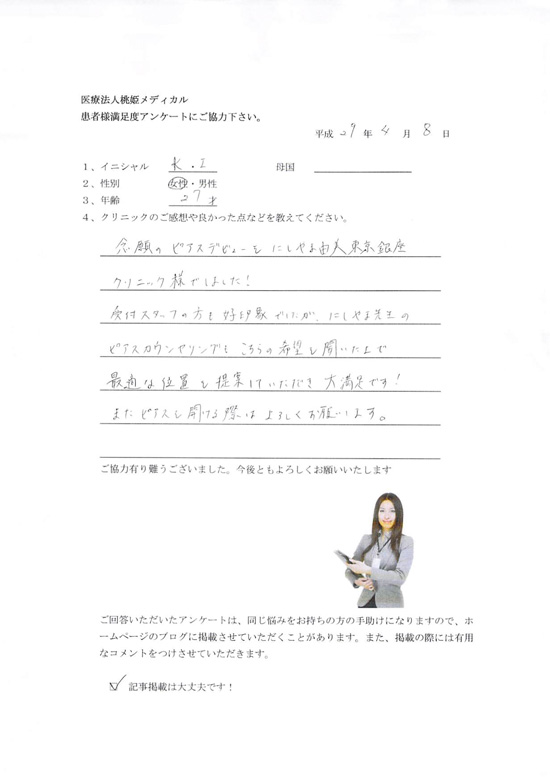 医療法人桃姫メディカル
患者様満足度アンケートにご協力下さい。
平成 29 年 4 月 8 日
1、イニシャル K.I 母国
2、性別 女性・男性
3、年齢 27才
4、クリニックのご感想や良かった点などを教えてください。
念願のピアスデビューをにしやま由美東京銀座
クリニック様でしました!
受付スタッフの方も好印象でしたが、にしやま先生の
ピアスカウンセリングもこちらの希望を聞いた上で
最適な位置を提案していただき大満足です!
またピアスを開ける際はよろしくお願いします。
ご協力有り難うございました。今後ともよろしくお願いいたします
ご回答いただいたアンケートは、同じ悩みをお持ちの方の手助けになりますので、ホ
ームページのブログに掲載させていただくことがあります。また、掲載の際には有用
なコメントをつけさせていただきます。
記事掲載は大丈夫です!